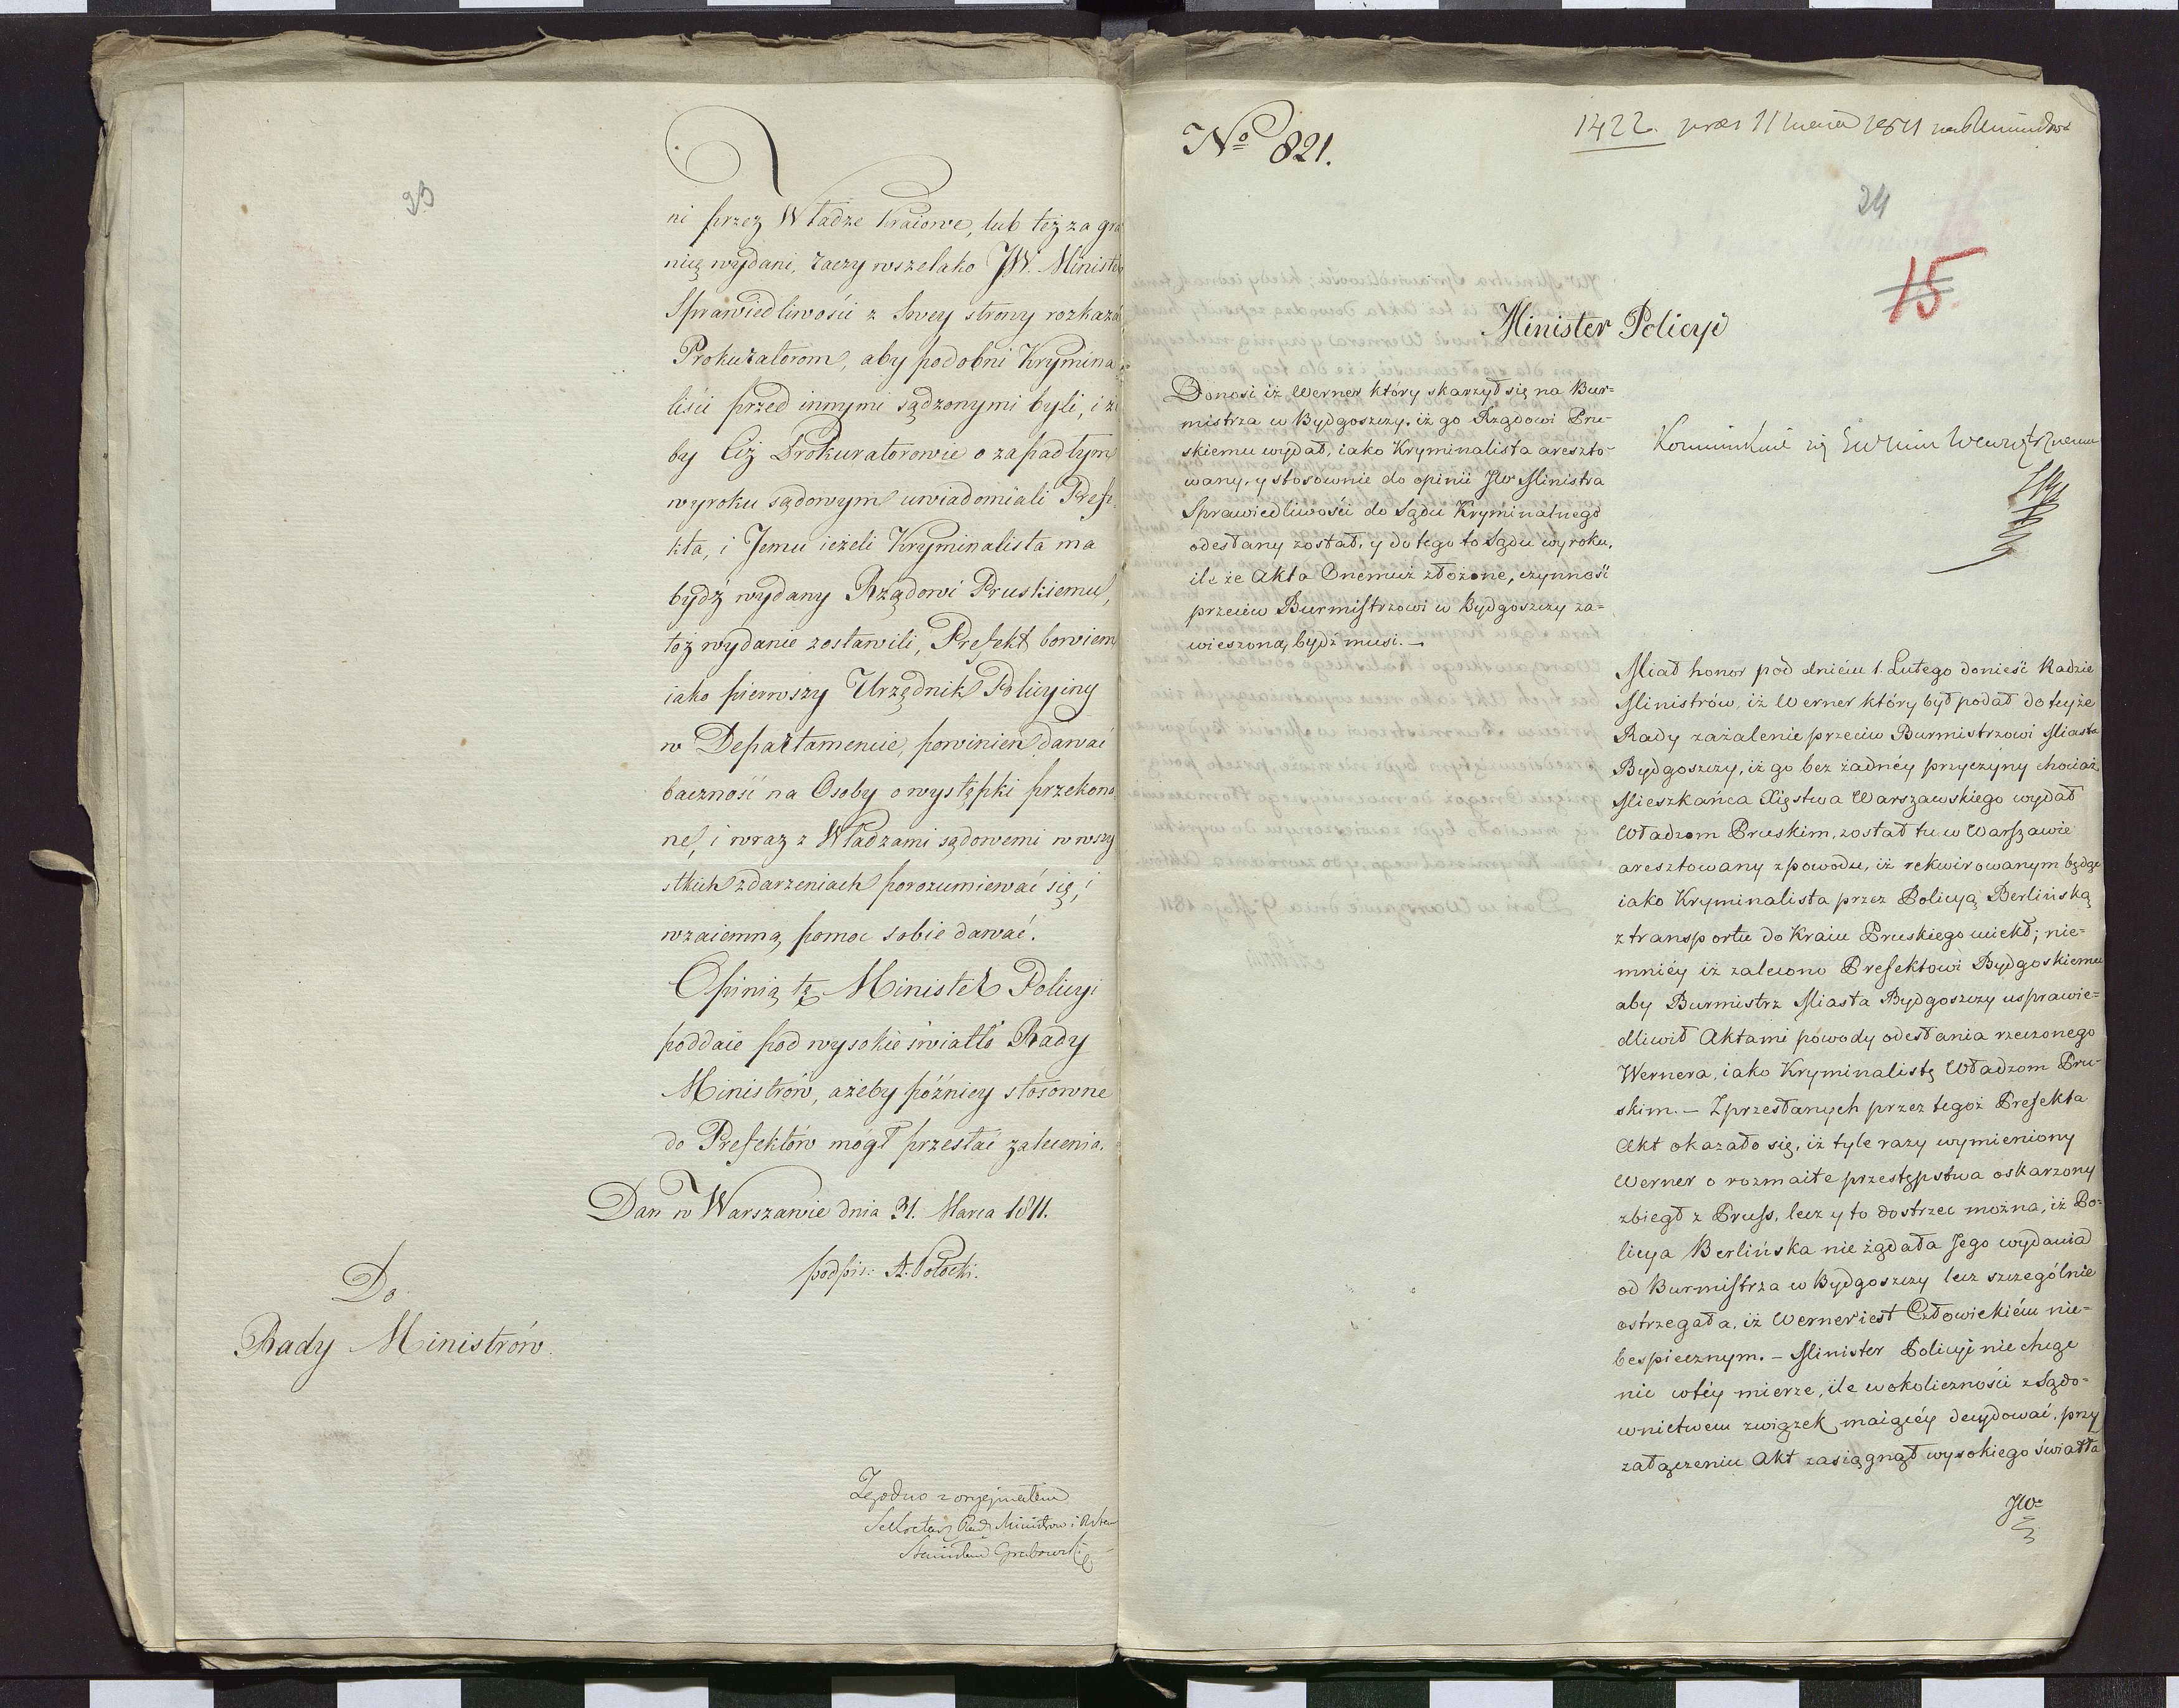 23
ni przez Władze Kraiowe, lub też za gra
nicę wydani, raczy wszelako JW. Minister
Sprawiedliwości z Swey strony rozkazać
Prokuratorom, aby podobni Krymina
liści przed innymi sądzonymi byli, i że
by Ciż Prokuratorowie o zapadłym
wyroku sądowym uwiadomiali Prefe
kta, i Jemu ieżeli Kryminalista ma
bydź wydany Rządowi Pruskiemu,
toż wydanie zostawili, Prefekt bowiem
iako pierwszy Urzędnik Policyiny
w Departamencie, powinien dawać
baczność na Osoby o występki przekona
ne, i wraz z Władzami sądowemi w wszy
stkich zdarzeniach porozumiewać się, i
wzaiemną pomoc sobie dawać.
Opinią tę Minister Policyi
poddaie pod wysokie światło Rady
Ministrów, ażeby późniey stosowne
do Prefektów mógł przesłać zalecenia.
Dan w Warszawie dnia 31. Marca 1811.
podpis: A. Potocki.
Do
Rady Ministrów.
Zgodno z oryginałem
Sekretarz Rady Ministrow i Stanu
Stanisław Grabowski
No 821.
1422. 1811
24
15.
Minister Policyi
Donosi iż Werner który skarzył się na Bur=
mistrza w Bydgoszczy, iż go Rządowi Pru-
skiemu wydał, iako Kryminalista areszto-
wany, y stosownie do opinii JW Ministra
Sprawiedliwości do Sądu Kryminalnego
odesłany został, y do tego to Sądu wyroku,
ile że Akta Onemuż złożone, czynność
przeciw Burmistrzowi w Bydgoszczy za=
wieszoną bydź musi. —
się Wewnętrznemu
Miał honor pod dniem 1. Lutego donieść Radzie
Ministrów, iż Werner który był podał do teyże
Rady zażalenie przeciw Burmistrzowi Miasta
Bydgoszczy, iż go bez żadnéy przyczyny chociaż
Mieszkańca Xięstwa Warszawskiego wydał
Władzom Pruskim, został tu w Warszawie
aresztowany z powodu, iż rekwirowanym będąc
iako Kryminalista przez Policyą Berlińską
z transportu do Kraiu Pruskiego uciekł; nie=
mniéy iż zalecono Prefektowi Bydgoskiemu
aby Burmistrz Miasta Bydgoszczy usprawie=
dliwił Aktami powody odesłania rzeczonego
Wernera, iako Kryminalistę Władzom Pru-
skim. — Z przesłanych przez tegoż Prefekta
Akt okazało się, iż tyle razy wymieniony
Werner o rozmaite przestępstwa oskarzony
zbiegł z Pruss, lecz y to dostrzec można, iż Po=
licya Berlińska nie żądała Jego wydania
od Burmistrza w Bydgoszczy lecz szczególnie
ostrzegała, iż Werner iest Człowiekiém nie=
bespiecznym. — Minister Policyi nie chcąc
nic w téy mierze, ile w okoliczności z Sądo=
wnictwem związek maiącéy decydować, przy
załączeniu Akt zasiągnął wysokiego światła
JW.